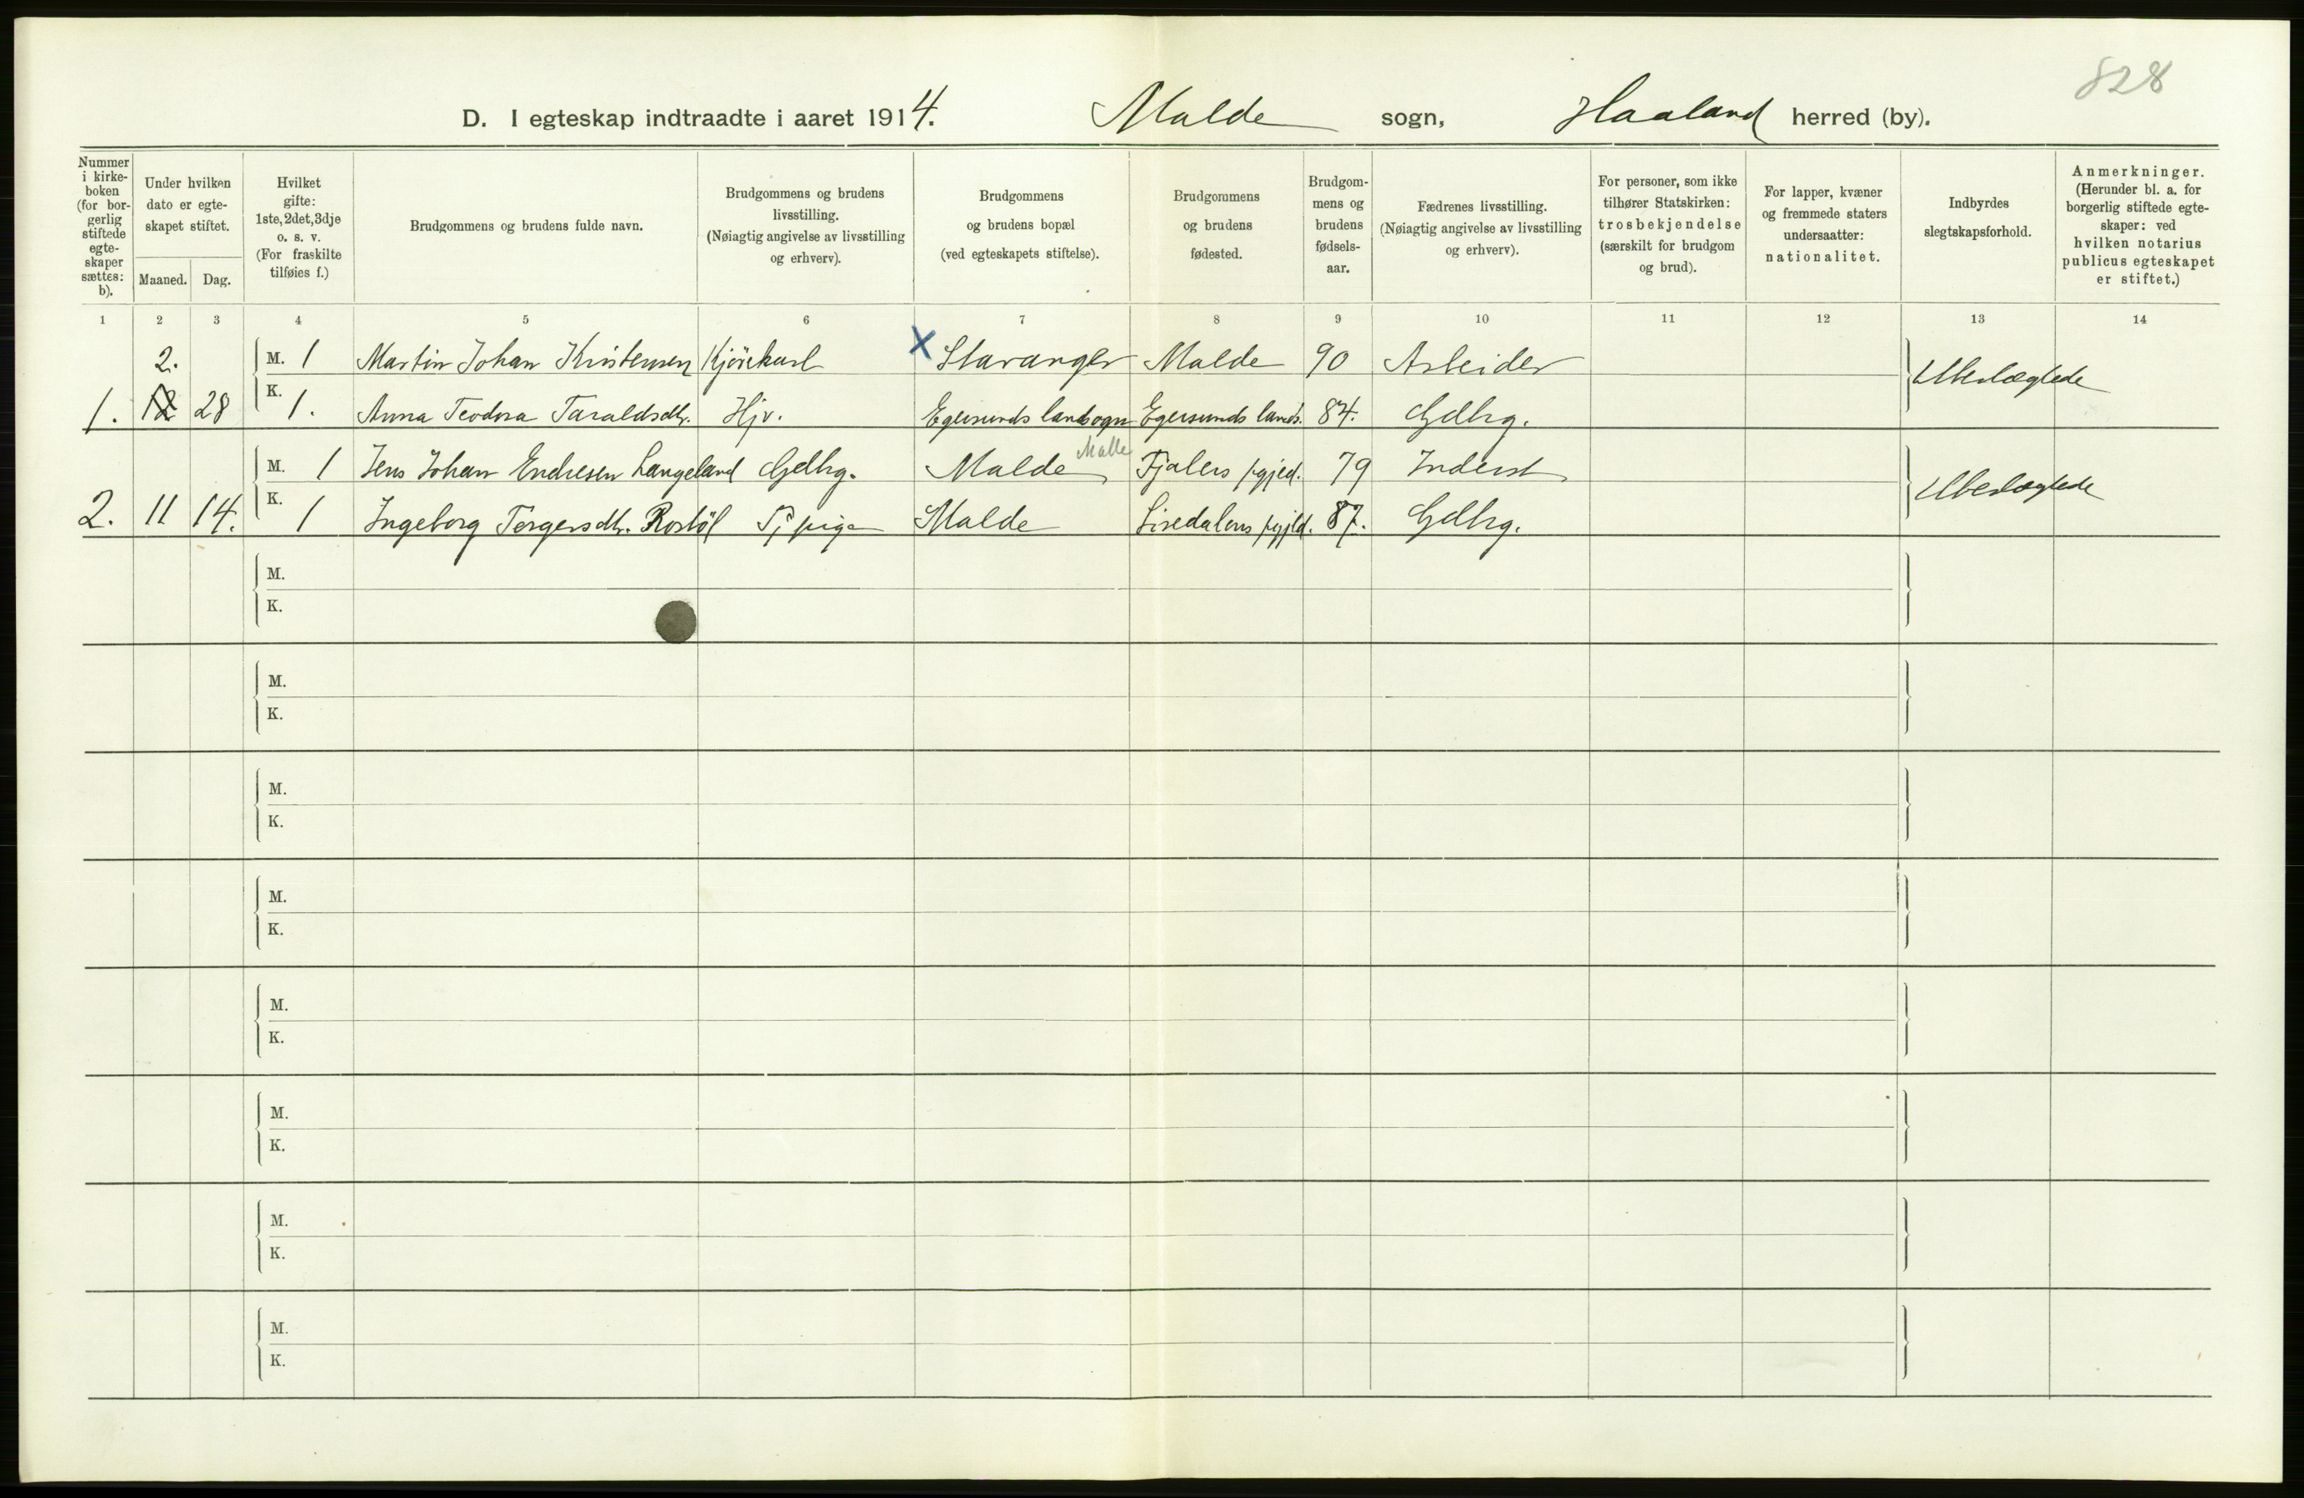 828
D. I egteskap indtraadte i aaret 1914. Malde sogn, Haaland herred (by).
Nummer i kirke-boken (for bor-gerlig stiftede egte-skaper sættes: b).
Under hvilken dato er egte-skapet stiftet.
Maaned. Dag.
Hvilket gifte: 1ste, 2det, 3dje o. s. v. (For fraskilte tilføies f.)
Brudgommens og brudens fulde navn.
Brudgommens og brudens livsstilling. (Nøiagtig angivelse av livsstilling og erhverv).
Brudgommens og brudens bopæl (ved egteskapets stiftelse).
Brudgommens og brudens fødested.
Brudgom-mens og brudens fødsels-aar.
Fædrenes livsstilling. (Nøiagtig angivelse av livsstilling og erhverv).
For personer, som ikke tilhører Statskirken: trosbekjendelse (særskilt for brudgom og brud).
For lapper, kvæner og fremmede staters undersaatter: nationalitet.
Indbyrdes slegtskapsforhold.
Anmerkninger. (Herunder bl. a. for borgerlig stiftede egte-skaper: ved hvilken notarius publicus egteskapet er stiftet.)
1 2 3 4 5 6 7 8 9 10 11 12 13 14
2. M. 1 Martin Johan Kristensen Kjørekarl X Stavanger Malde 90 Arbeider Ubeslægtede
1. 12 28 K. 1. Anna Teodora Taraldsdtr. Hjv. Egersunds landsogn Egersunds lands. 84. Gdbrg.
Malle
M. 1 Jens Johan Endresen Langeland Gdbrg. Malde Fjalers pgjed. 79 Inderst Ubeslægtede
2. 11 14. K. 1 Ingeborg Torgersdtr. Rostøl Tj pige Malde Siredalens pgjld. 87. Gdbrg.
M.
K.
M.
K.
M.
K.
M.
K.
M.
K.
M.
K.
M.
K.
M.
K.